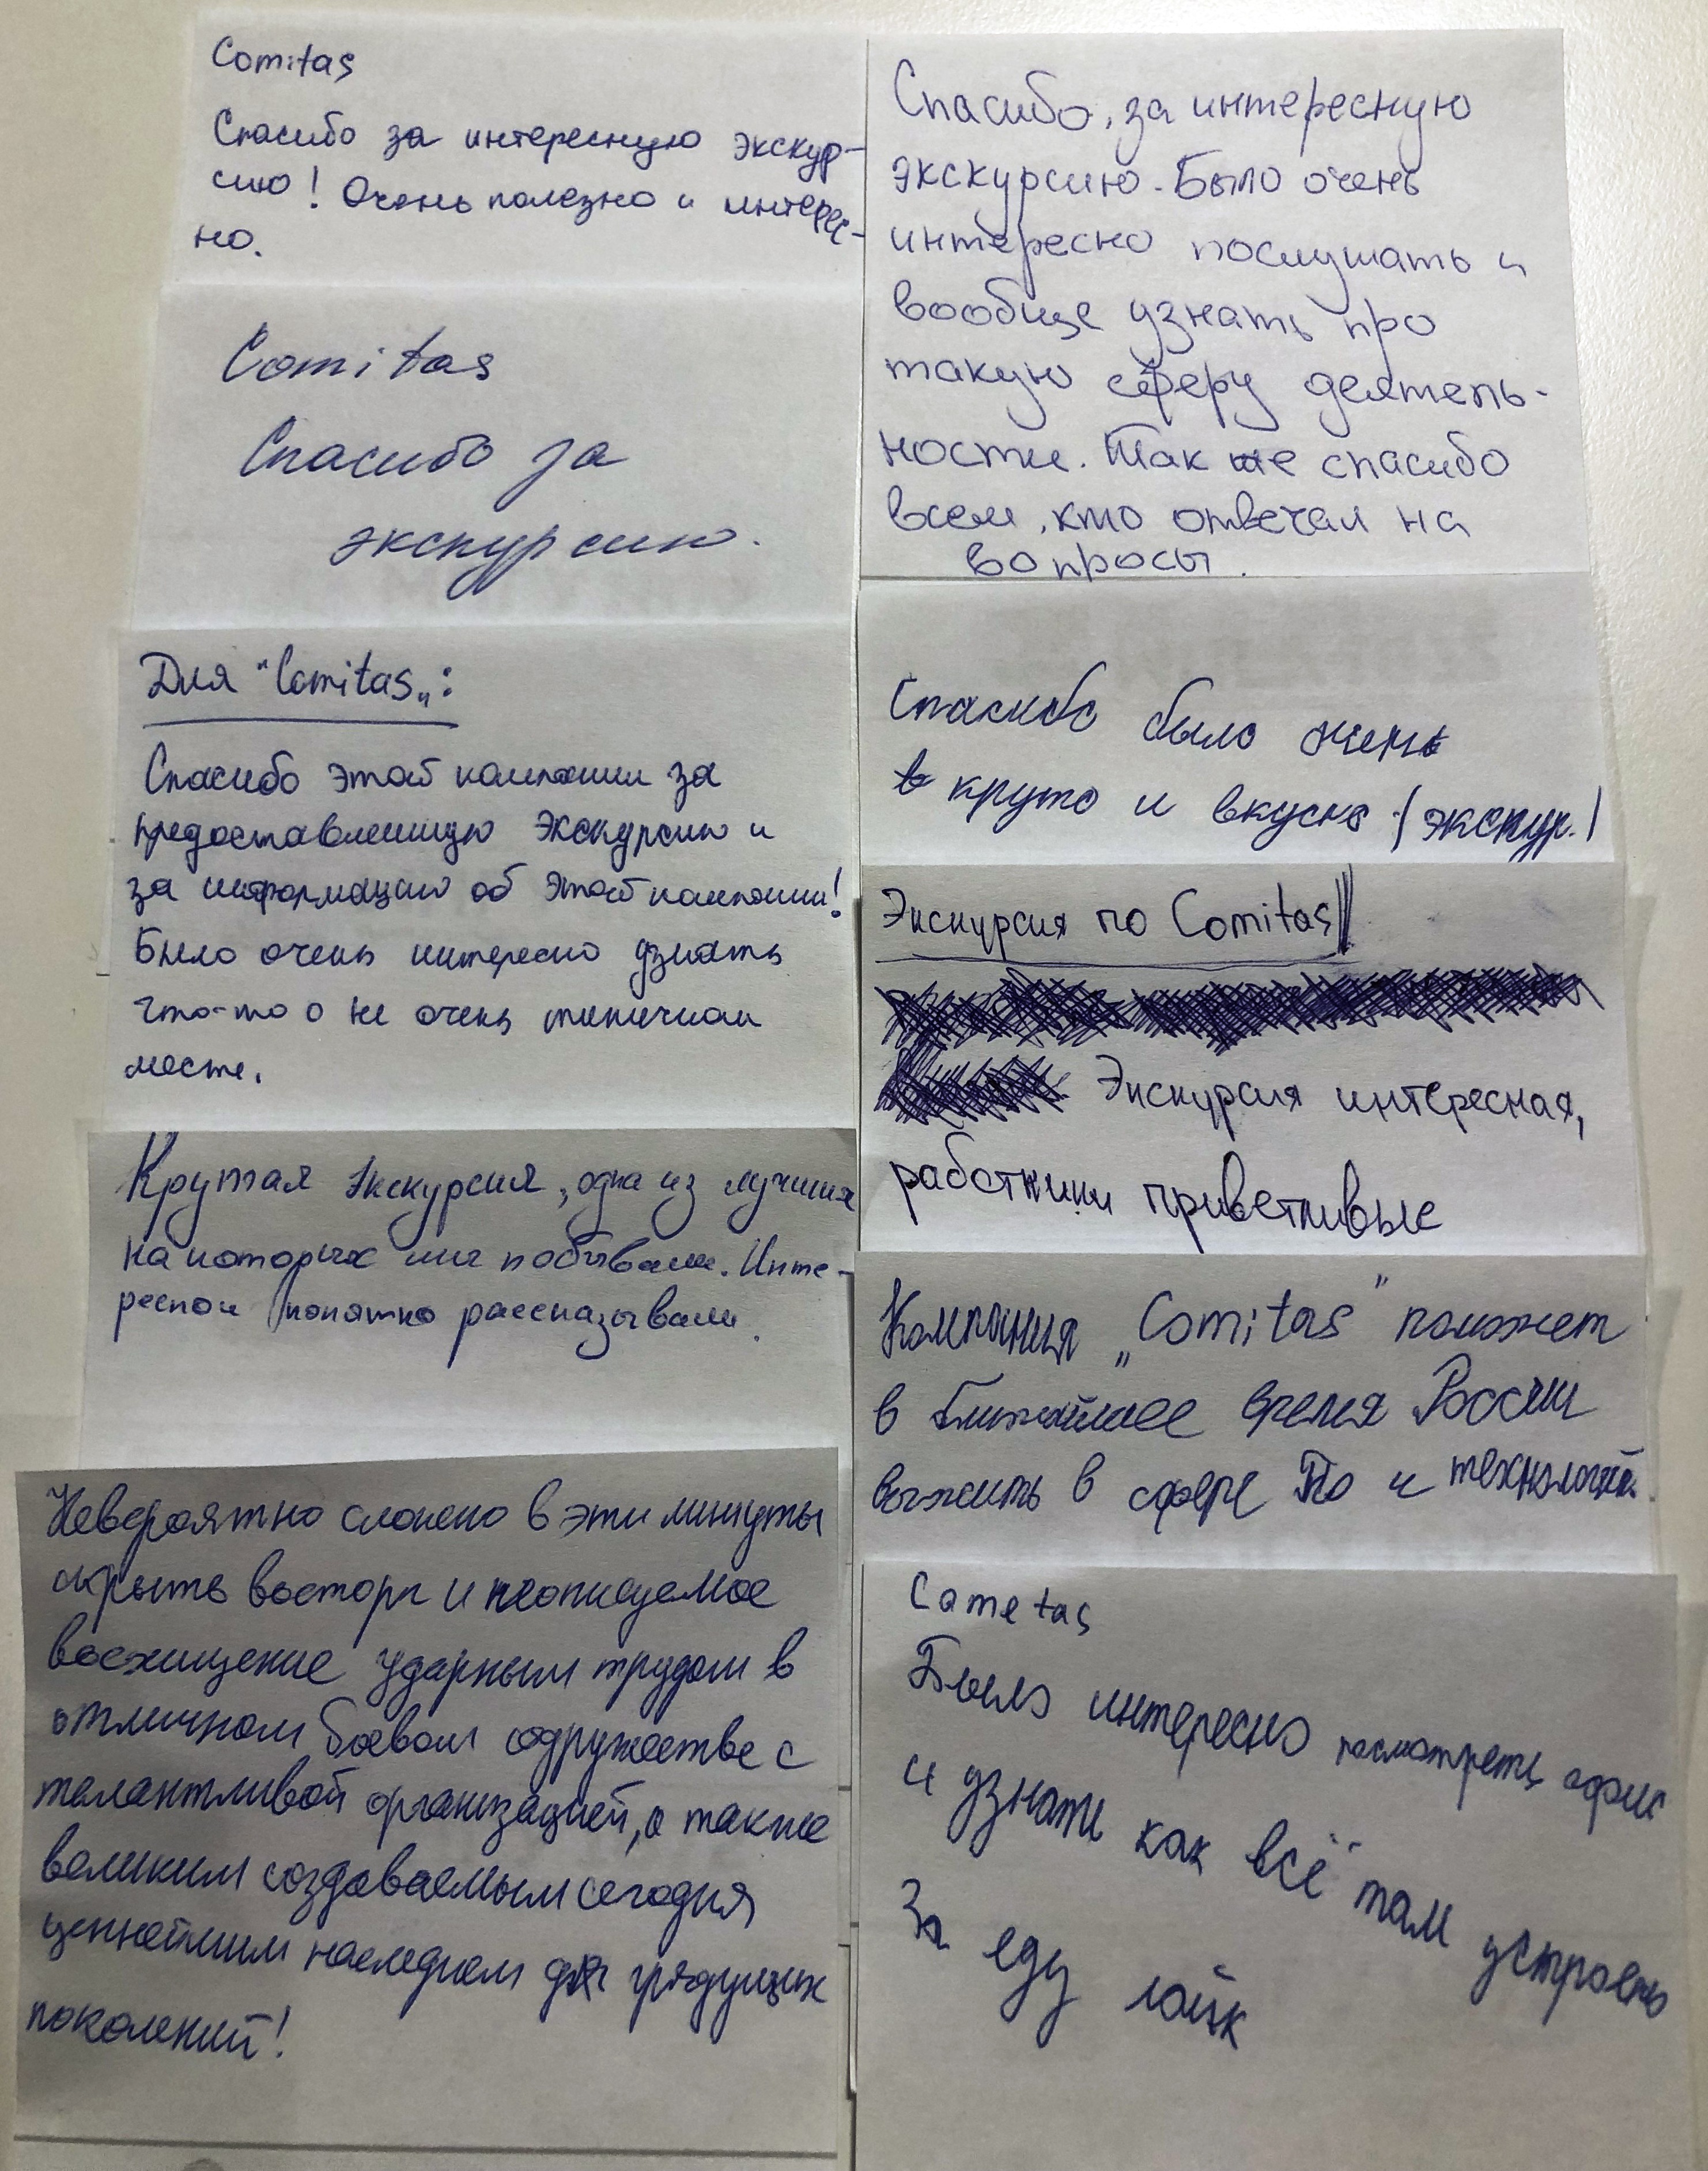 Comitas
Спасибо за интересную экскур-
сию! Очень полезно и интерес-
но.
Comitas
Спасибо за
экскурсию.
Для "Comitas„:
Спасибо этой компании за
предоставленную экскурсию и
за информацию об этой компании!
Было очень интересно узнать
что-то о не очень типичном
месте.
Крутая экскурсия, одна из лучших
на которых мы побывали. Инте-
ресно и понятно рассказывали.
Невероятно сложно в эти минуты
скрыть восторг и неописуемое
восхищение ударным трудом в
отличном боевом содружестве с
талантливой организацией, а также
великим создаваемым сегодня
ценнейшим наследием для грядущих
поколений!
Спасибо, за интересную
экскурсию. Было очень
интересно послушать и
вообще узнать про
такую сферу деятель-
ности. Так же спасибо
всем, кто отвечал на
вопросы.
Спасибо было очень
круто и вкусно (экскур.)
Экскурсия по Comitas
Экскурсия интересная,
работники приветливые
Компания „Comitas" поможет
в ближайшее время России
выжить в сфере По и технологий.
Cometas
Было интересно посмотреть офис
и узнать как всё там устроено
За еду лайк